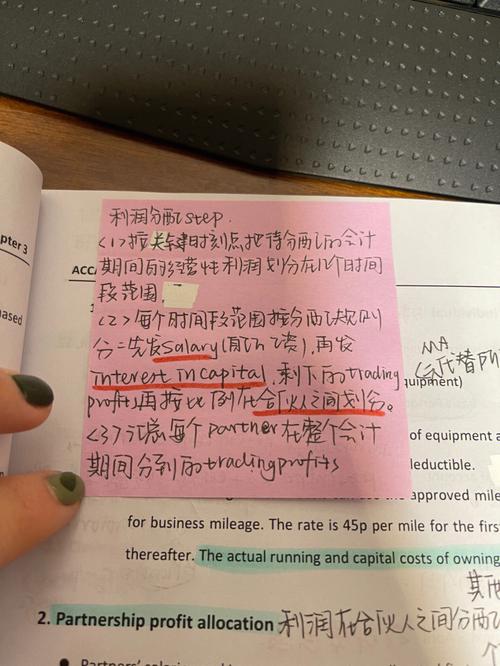 pter 3
ACCA
ased
利润分配step.
<1>按关键时刻点,把待分配的会计
期间的经营性利润划分在几个时间
段范围
<2>每个时间段范围按分配规则
分:先发salary 再发
interest in capital,剩下的trading
profit,再按比例在合伙人之间划分。
<3>汇总每个partner在整个会计
期间分到的trading profits
MA
quipment)
of equipment a
deductible.
approved mile
for business mileage. The rate is 45p per mile for the first
thereafter. The actual running and capital costs of owning
其他
2. Partnership profit allocation 利润在合伙人之间分配
个